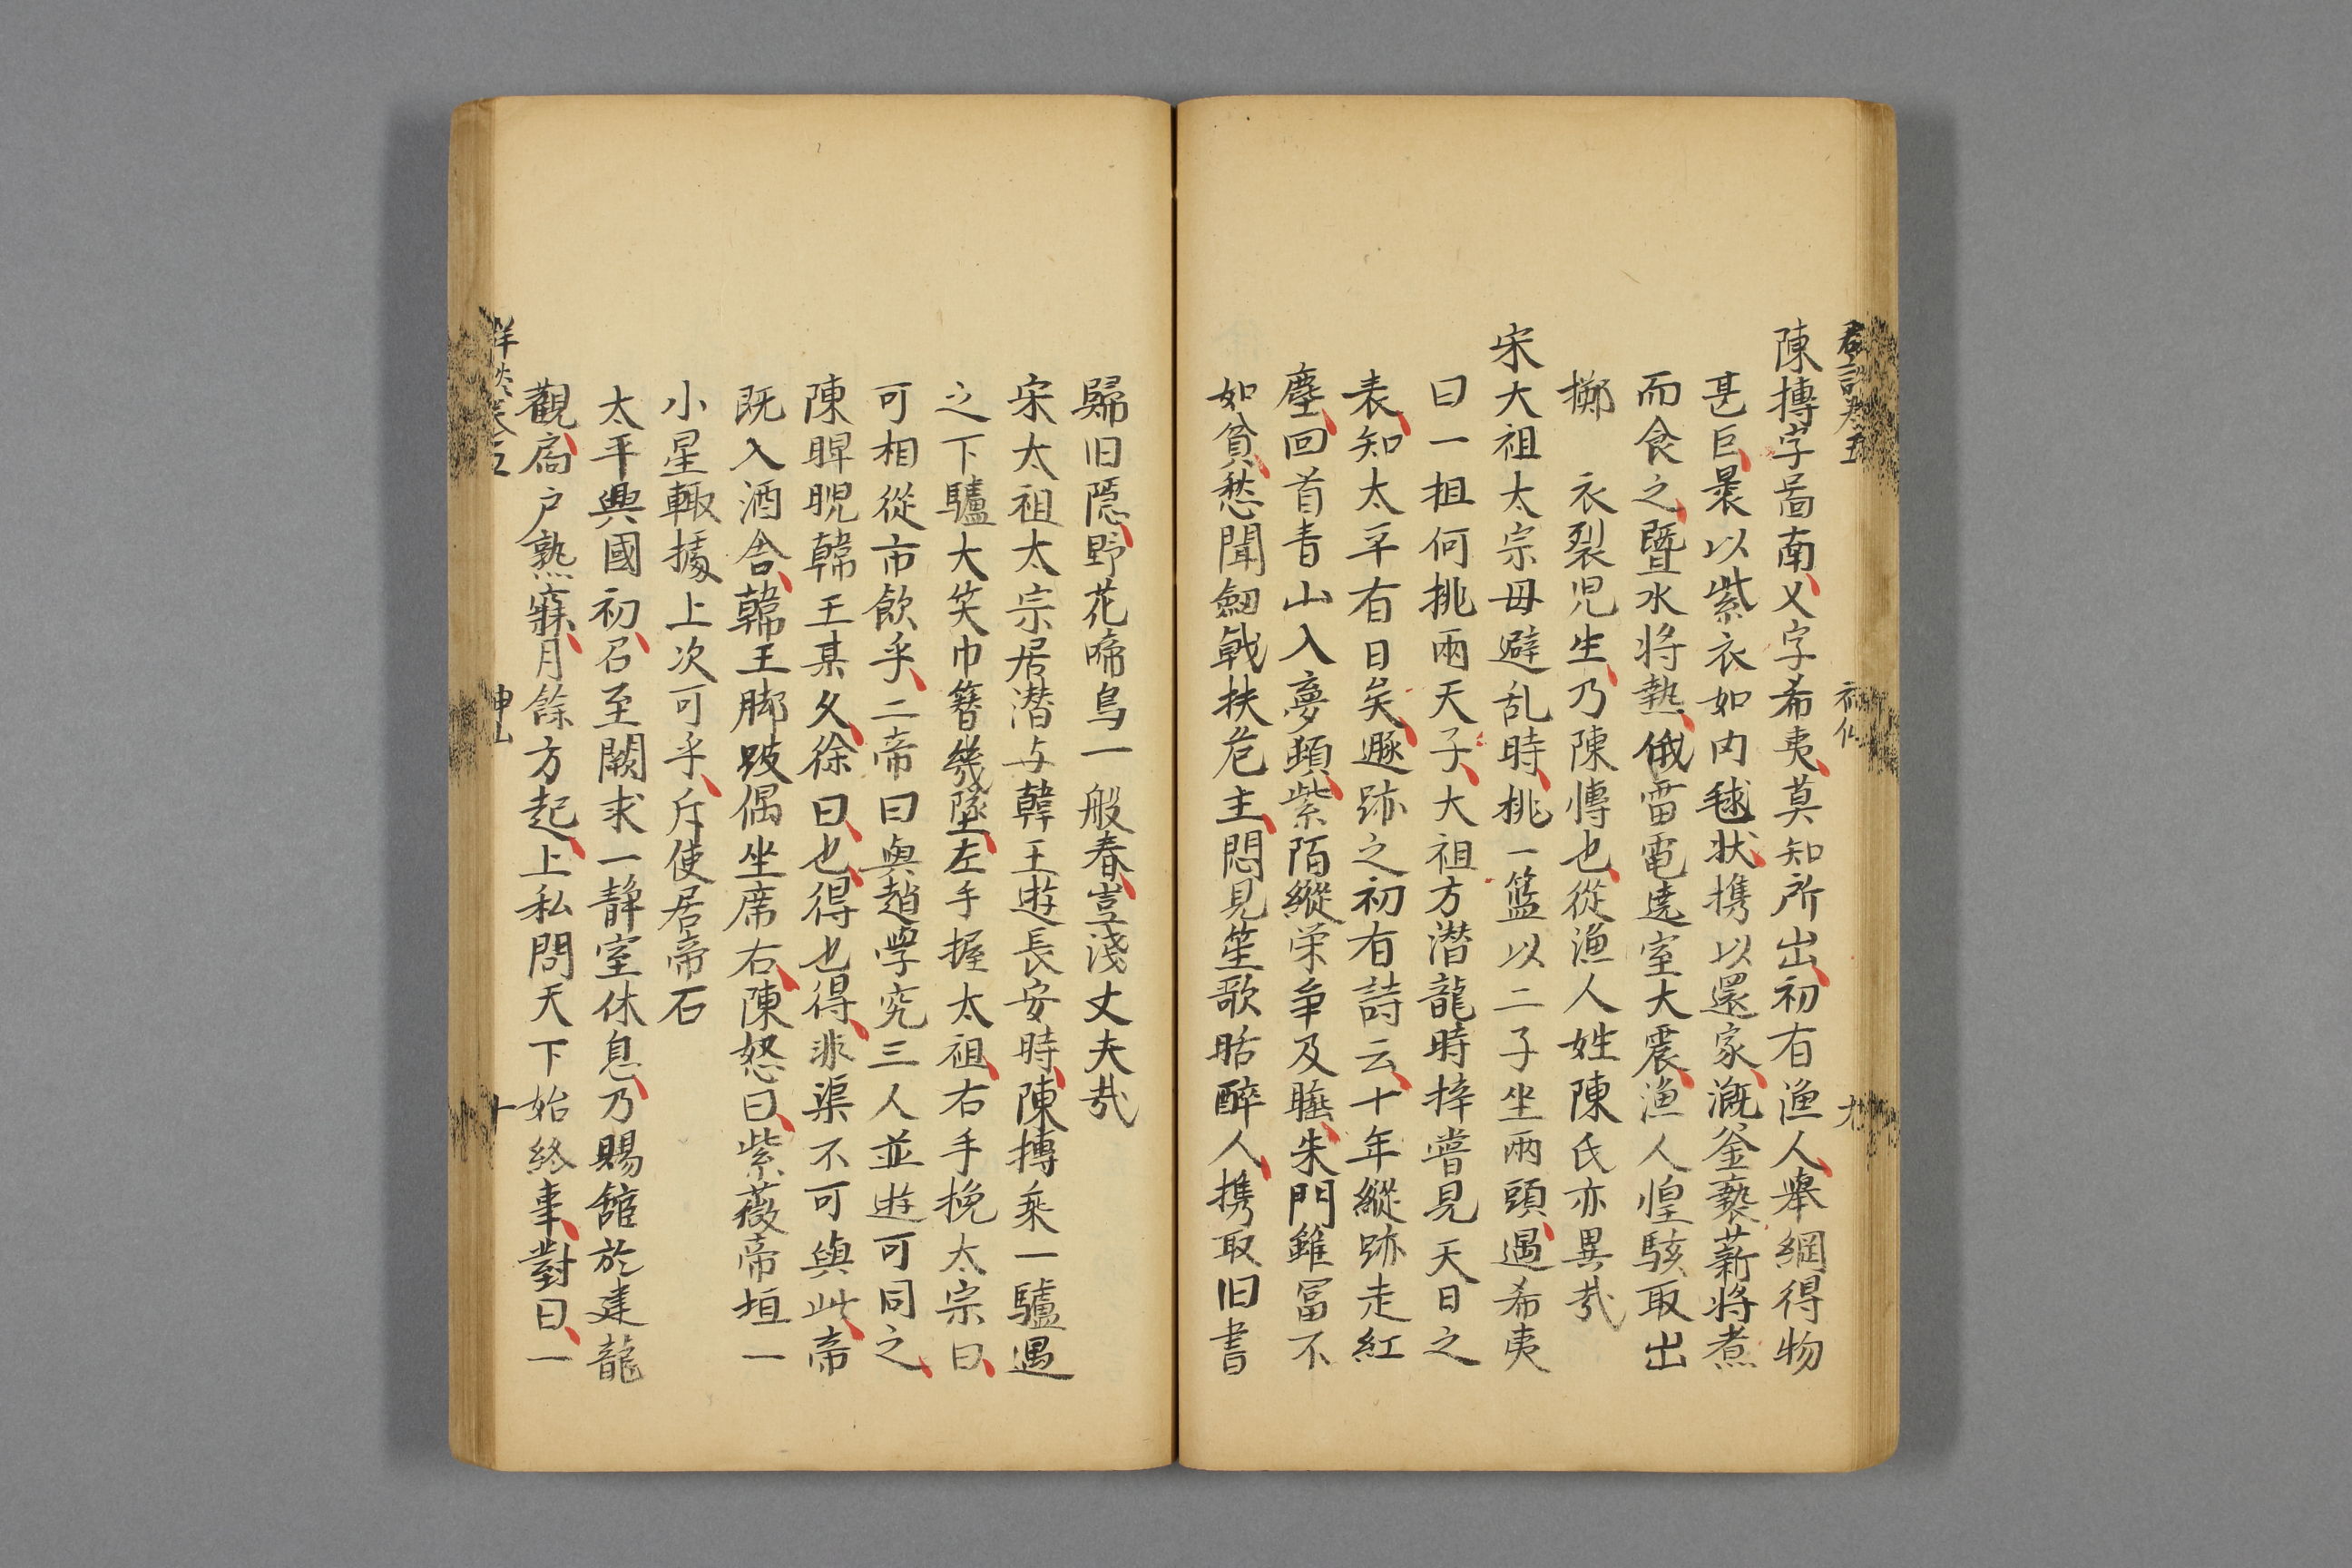 陳摶字啚南又字希夷莫知所出初有漁人舉網得物
甚巨裹以紫衣如肉毬状携以還家漑釜爇薪将煮
而食之暨水将熱俄雷電遶室大震漁人惶駭取出
擲 衣裂児生乃陳慱也從漁人姓陳氏亦異㢤
宋大祖太宗母避乱時挑一籃以二子坐兩頭遇希夷
曰一担何挑兩天子大祖方潜龍時摶嘗見天日之
表知太平有日矣遯跡之初有詩云十年縱跡走紅
塵回首青山入夢頻紫陌縱栄争及睡朱門雖冨不
如貧愁聞劒戟扶危主悶見笙歌聒醉人携取旧書
歸旧隱野花啼鳥一般春豈淺丈夫㢤
宋太祖太宗居潜与韓王遊長安時陳摶乗一驢遇
之下驢大笑巾簪幾墜左手握太祖右手挽太宗曰
可相從市飲乎二帝曰與趙學究三人並遊可同之
陳睥睨韓王某久徐曰也得也得非渠不可與此帝
既入酒舎韓王脚跛偶坐席右陳怒曰紫薇帝垣一
小星輙據上次可乎斥使居帝石
太平興國初召至闕求一静室休息乃賜舘於建龍
觀扃户熟寐月餘方起上私問天下始終事對曰一